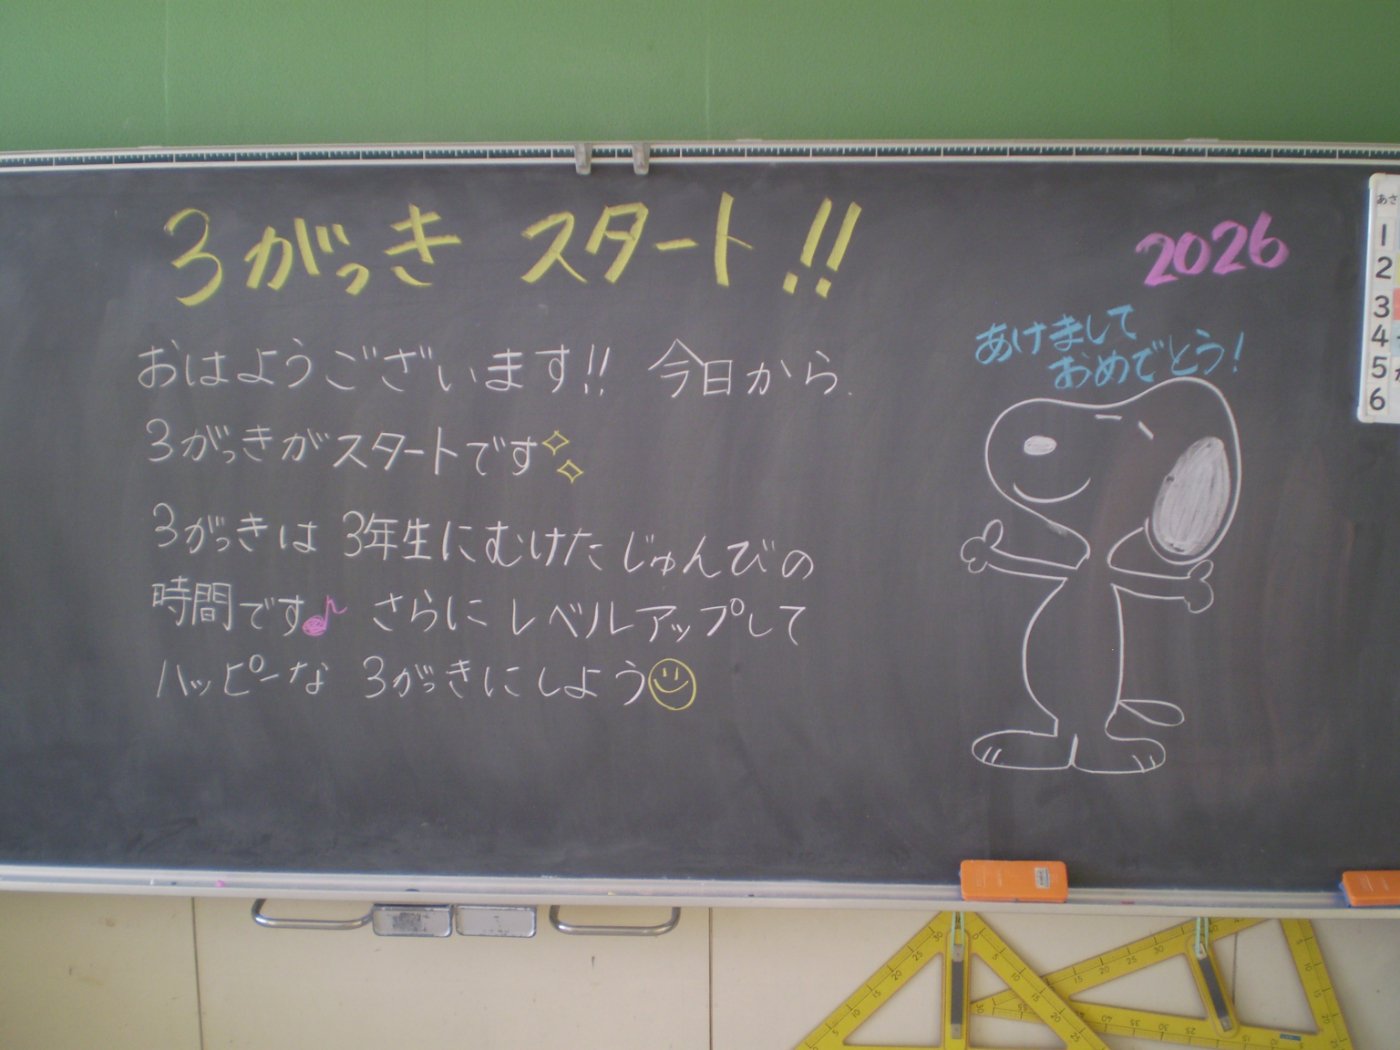 3がっき スタート!!
2026
あけまして
おめでとう!
おはようございます!! 今日から、
3がっきがスタートです
3がっきは 3年生にむけた じゅんびの
時間です♪ さらに レベルアップして
ハッピーな 3がっきにしよう
あさ
1
2
3
4
5
6